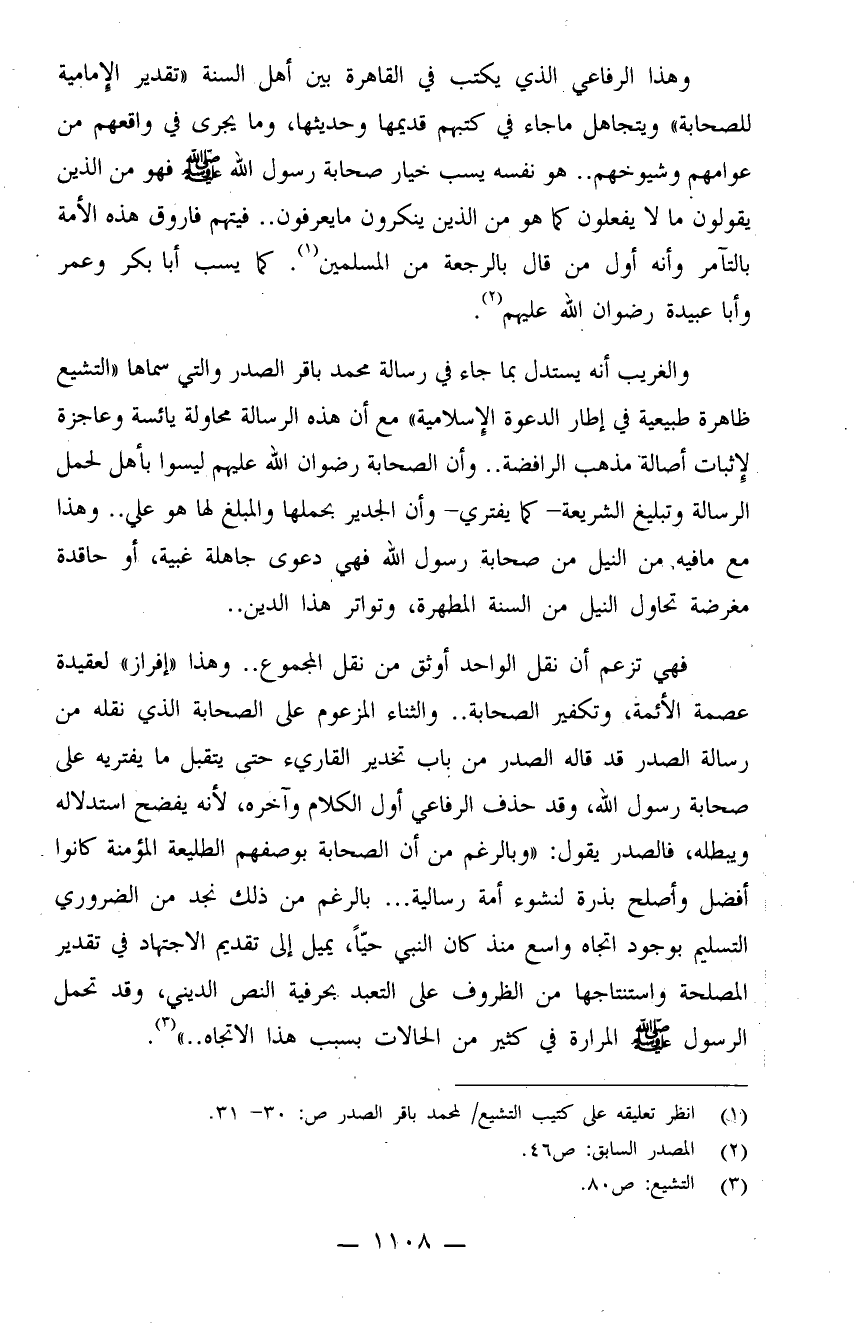 وهذا الرفاعي الذي يكتب في القاهرة بين أهل السنة «تقدير الإمامية
للصحابة» ويتجاهل ماجاء في كتبهم قديمها وحديثها، وما يجرى في واقعهم من
عوامهم وشيوخهم.. هو نفسه يسب خيار صحابة رسول الله ﷺ فهو من الذين
يقولون ما لا يفعلون كما هو من الذين ينكرون مايعرفون.. فيتهم فاروق هذه الأمة
بالتآمر وأنه أول من قال بالرجعة من المسلمين(١). كما يسب أبا بكر وعمر
وأبا عبيدة رضوان الله عليهم(٢).
والغريب أنه يستدل بما جاء في رسالة محمد باقر الصدر والتي سماها «التشيع
ظاهرة طبيعية في إطار الدعوة الإسلامية» مع أن هذه الرسالة محاولة يائسة وعاجزة
لإثبات أصالة مذهب الرافضة.. وأن الصحابة رضوان الله عليهم ليسوا بأهل لحمل
الرسالة وتبليغ الشريعة– كما يفتري– وأن الجدير بحملها والمبلغ لها هو علي.. وهذا
مع مافيه من النيل من صحابة رسول الله فهي دعوى جاهلة غبية، أو حاقدة
مغرضة تحاول النيل من السنة المطهرة، وتواتر هذا الدين..
فهي تزعم أن نقل الواحد أوثق من نقل المجموع.. وهذا «إفراز» لعقيدة
عصمة الأئمة، وتكفير الصحابة.. والثناء المزعوم على الصحابة الذي نقله من
رسالة الصدر قد قاله الصدر من باب تخدير القاريء حتى يتقبل ما يفتريه على
صحابة رسول الله، وقد حذف الرفاعي أول الكلام وآخره، لأنه يفضح استدلاله
ويبطله، فالصدر يقول: «وبالرغم من أن الصحابة بوصفهم الطليعة المؤمنة كانوا
أفضل وأصلح بذرة لنشوء أمة رسالية... بالرغم من ذلك نجد من الضروري
التسليم بوجود اتجاه واسع منذ كان النبي حيّاً، يميل إلى تقديم الاجتهاد في تقدير
المصلحة واستنتاجها من الظروف على التعبد بحرفية النص الديني، وقد تحمل
الرسول ﷺ المرارة في كثير من الحالات بسبب هذا الاتجاه..»(٣).
(١) انظر تعليقه على كتيب التشيع/ لمحمد باقر الصدر ص: ٣٠– ٣١.
(٢) المصدر السابق: ص٤٦.
(٣) التشيع: ص٨٠.
— ١١٠٨ —